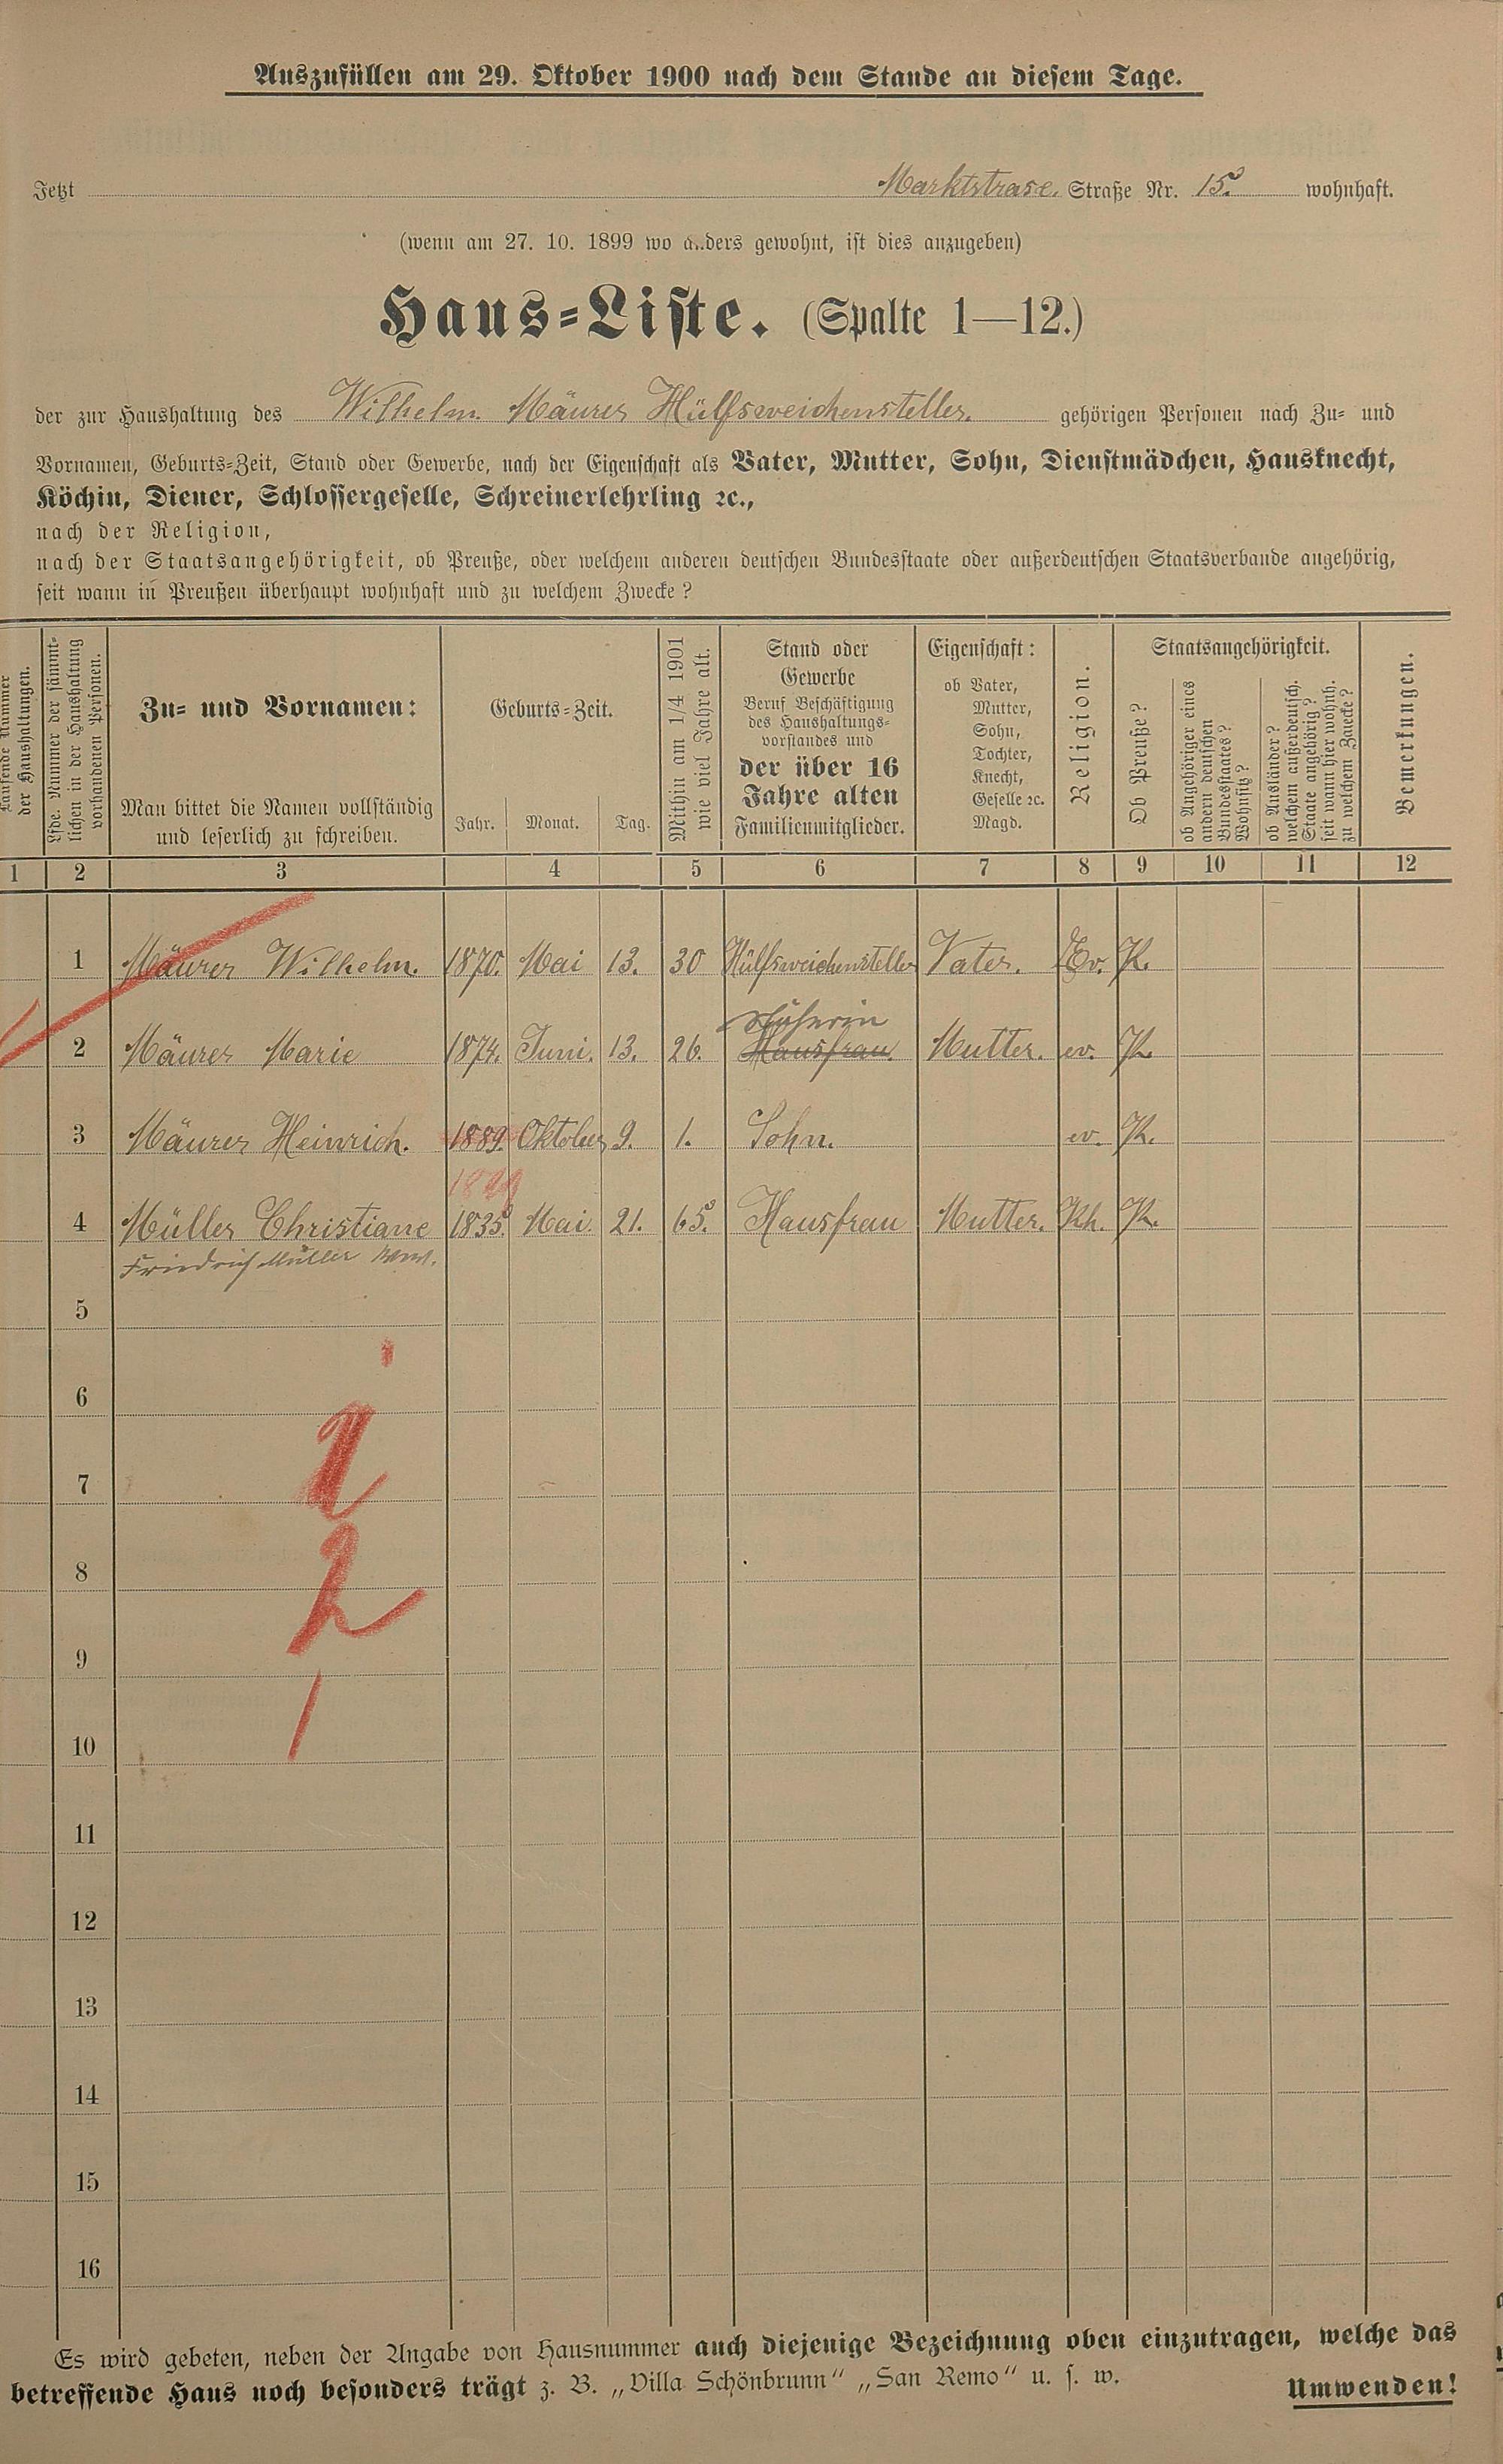 Auszufüllen am 29. Oktober 1900 nach dem Stande an diesem Tage.
Jetzt Marktstrase. Straße Nr. 15. wohnhaft.
(wenn am 27. 10. 1899 wo anders gewohnt, ist dies anzugeben)
Haus-Liste. (Spalte 1—12.)
der zur Haushaltung des Wilhelm Mäurer Hülfsweichensteller. gehörigen Personen nach Zu- und
Vornamen, Geburts-Zeit, Stand oder Gewerbe, nach der Eigenschaft als Vater, Mutter, Sohn, Dienstmädchen, Hausknecht,
Köchin, Diener, Schlossergeselle, Schreinerlehrling ꝛc.,
nach der Religion,
nach der Staatsangehörigkeit, ob Preuße, oder welchem anderen deutschen Bundesstaate oder außerdeutschen Staatsverbande angehörig,
seit wann in Preußen überhaupt wohnhaft und zu welchem Zwecke?
Laufende Nummer
der Haushaltungen.
Lfde. Nummer der sämmt-
lichen in der Haushaltung
vorhandenen Personen.
Zu- und Vornamen:
Man bittet die Namen vollständig
und leserlich zu schreiben.
Geburts-Zeit.
Jahr. Monat. Tag.
Mithin am 1/4 1901
wie viel Jahre alt.
Stand oder
Gewerbe
Beruf Beschäftigung
des Haushaltungs-
vorstandes und
der über 16
Jahre alten
Familienmitglieder.
Eigenschaft:
ob Vater,
Mutter,
Sohn,
Tochter,
Knecht,
Geselle ꝛc.
Magd.
Religion.
Staatsangehörigkeit.
Ob Preuße?
ob Angehöriger eines
andern deutschen
Bundesstaates?
Wohnsitz?
ob Ausländer?
welchem außerdeutsch.
Staate angehörig?
seit wann hier wohnh.
zu welchem Zwecke?
Bemerkungen.
1 2 3 4 5 6 7 8 9 10 11 12
1 Mäurer Wilhelm. 1870. Mai 13. 30 Hülfsweichensteller Vater. Ev. P.
2 Mäurer Marie 1874. Juni. 13. 26. Hausfrau. Mutter. ev. P.
3 Mäurer Heinrich. 1889. Oktober 9. 1. Sohn. ev. P.
1899
4 Müller Christiane 1835. Mai. 21. 65. Hausfrau Mutter. Kh. P.
Friedrich Müller Wwe.
5
6
7
8
2
9
1
10
11
12
13
14
15
16
Es wird gebeten, neben der Angabe von Hausnummer auch diejenige Bezeichnung oben einzutragen, welche das
betreffende Haus noch besonders trägt z. B. „Villa Schönbrunn“ „San Remo“ u. s. w.
Umwenden!